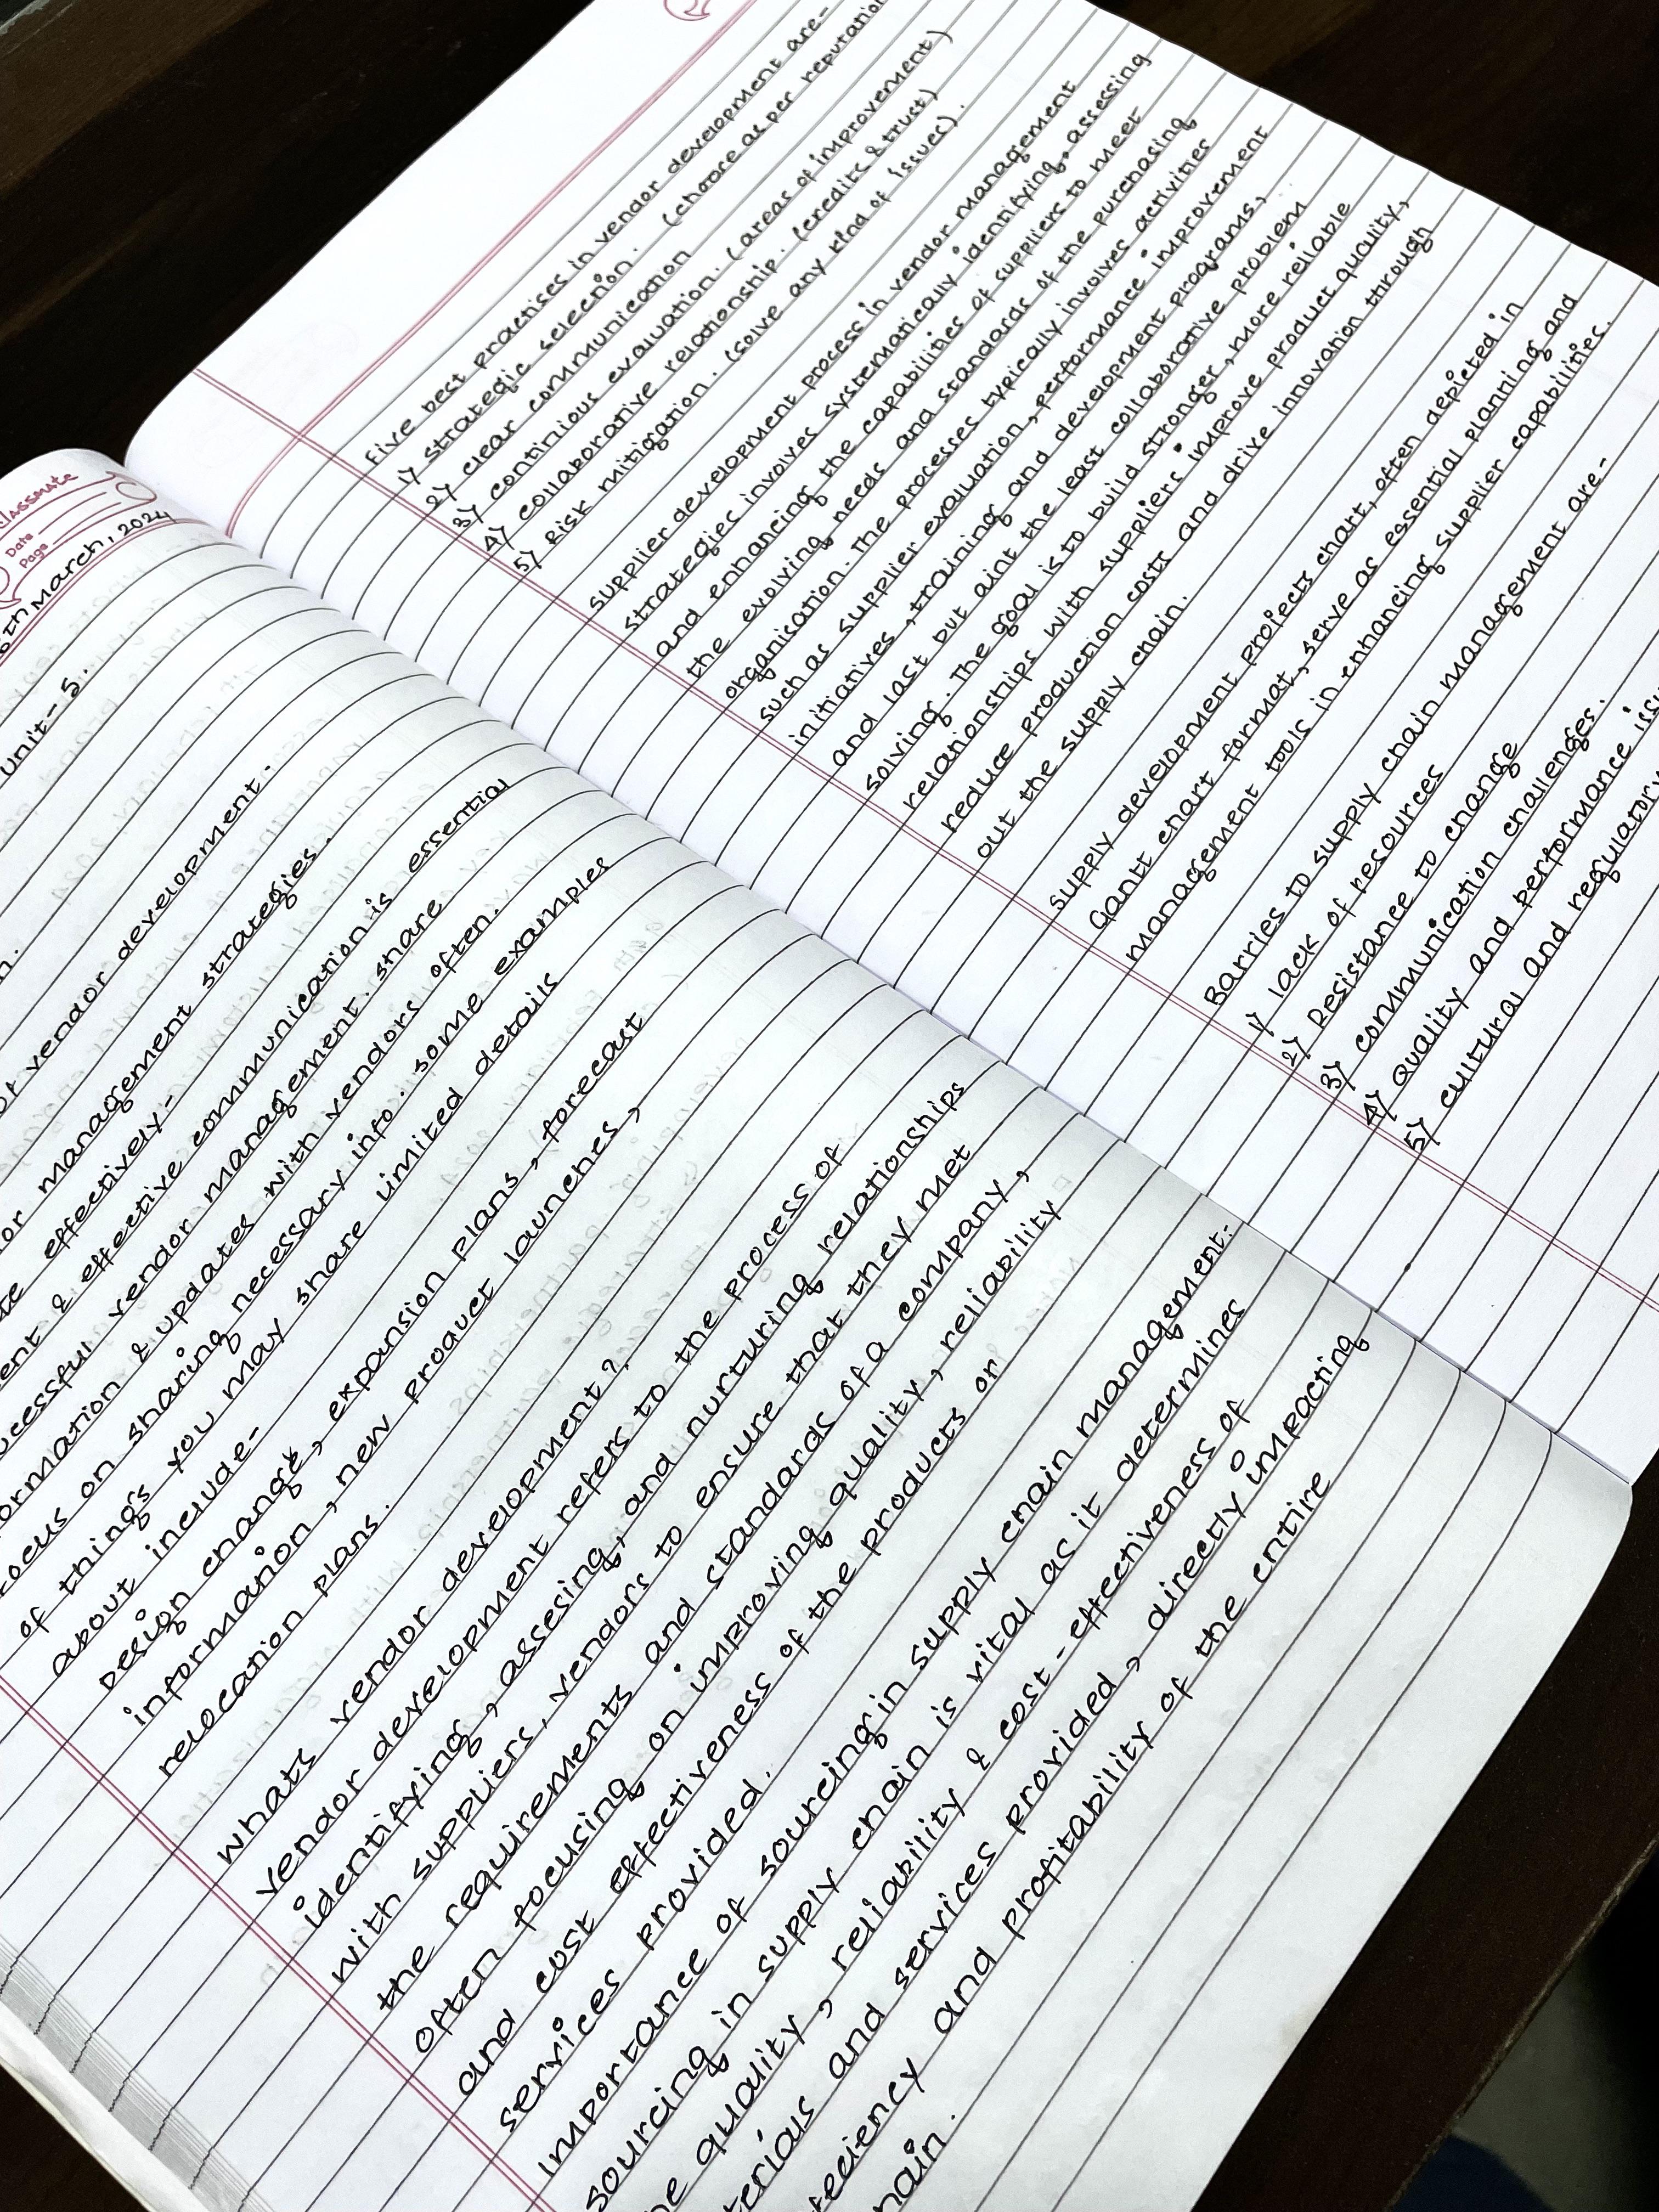 classmate
Date
Page
th March, 2024
Unit - 5.
n.
of vendor development.
or management strategies.
te effectively-
ent & effective communication is essential
ccessful vendor management. share
formation & updates with vendors often.
focus on sharing necessary info. some examples
of things you may share limited details
about include-
Design change, expansion plans, forecast
information, new product launches,
relocation plans.
Whats vendor development?
Vendor development refers to the process of
identifying, assesing, and nurturing relationships
with suppliers, vendors to ensure that they met
the requirements and standards of a company,
often focusing on improving quality, reliability
and cost effectiveness of the products or
services provided.
Importance of sourcing in supply chain management:
sourcing in supply chain is vital as it determines
he quality, reliability & cost-effectiveness of
terious and services provided, directly impacting
feciency and profitability of the entire
hain.
Five best practises in vendor development are-
1) Strategic selection. (choose as per reputation
2) clear communication
3) continious evaluation. (areas of improvement)
4) collaborative relationship. (credits & trust)
5) Risk mitigation. (solve any kind of issues).
supplier development process in vendor management
strategies involves systematically identifying, assessing
and enhancing the capabilities of suppliers to meet
the evolving needs and standards of the purchasing
organisation. The processes typically involves activities
such as supplier evaluation, performance improvement
initiatives, training and development programs,
and last but aint the least collaborative problem
solving. The goal is to build stronger, more reliable
relationships with suppliers improve product quality,
reduce production costs and drive innovation through
out the supply chain.
supply development projects chart, often depicted in
Gantt chart format, serve as essential planning and
management tools in enhancing supplier capabilities.
Barries to supply chain management are-
1) lack of resources
2) Resistance to change
3) communication challenges.
4) Quality and performance issu
5) cultural and regulatory